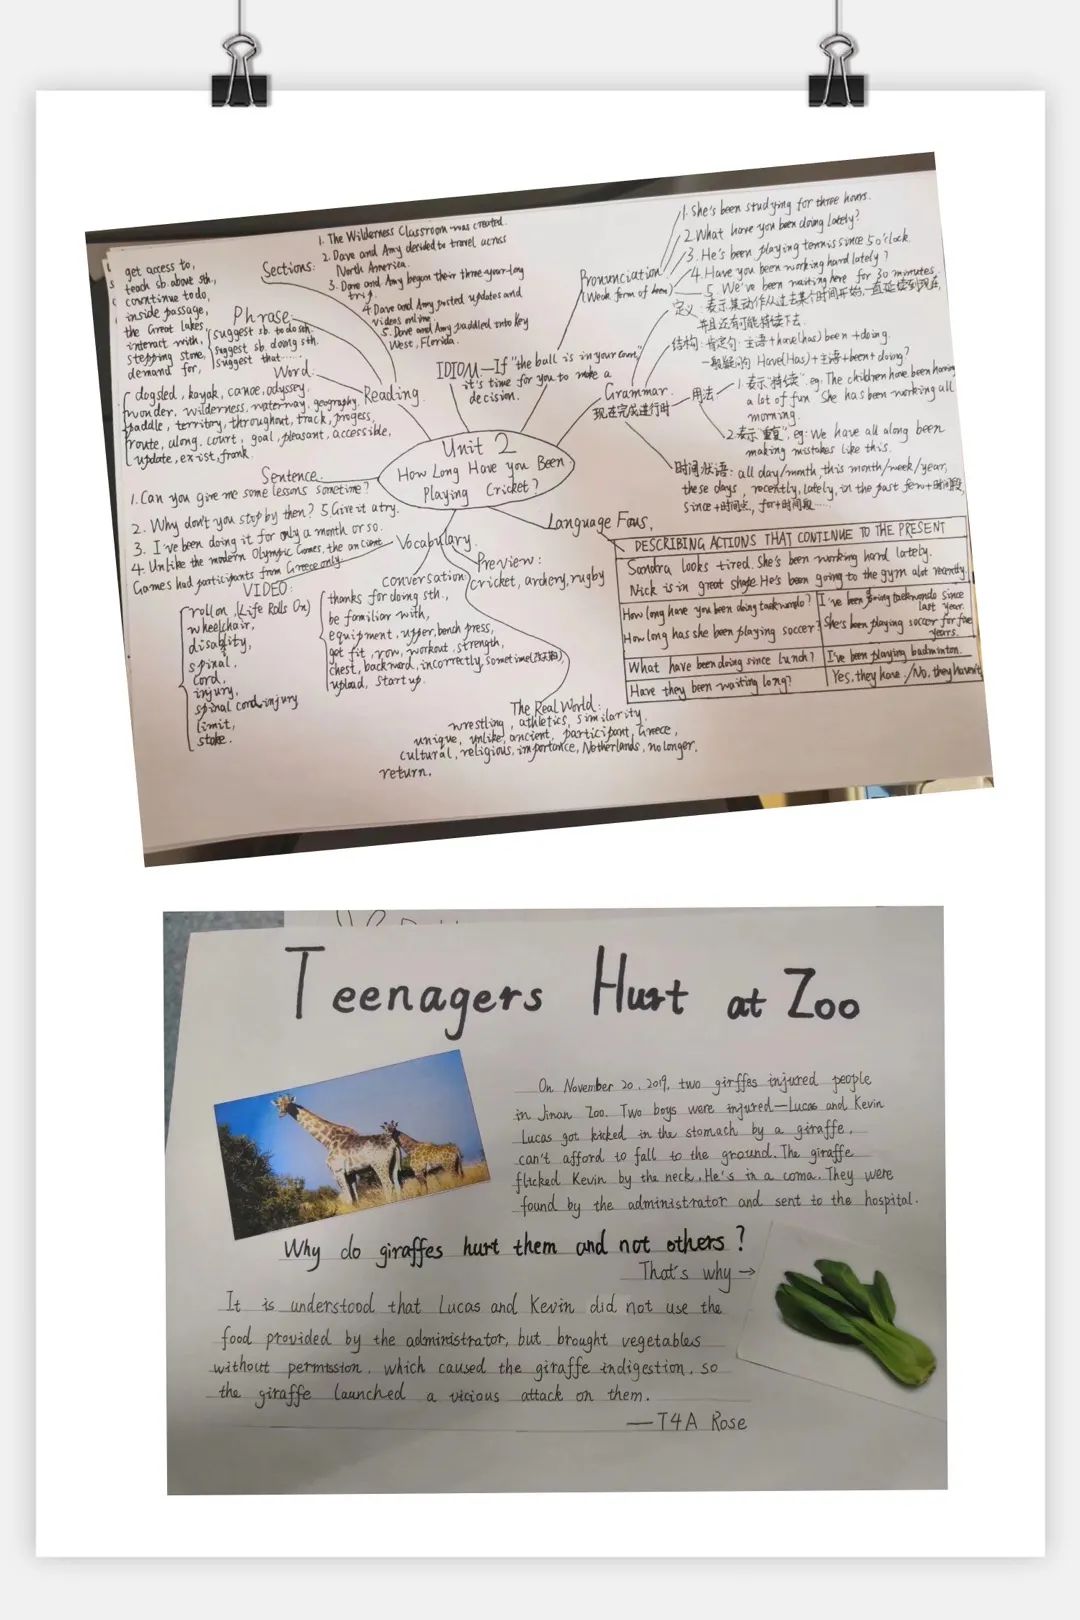 1. The Wilderness Classroom was created.
Sections:
2. Dave and Amy decided to travel across
North America.
3. Dave and Amy began their three-year-long
trip.
4. Dave and Amy posted updates and
videos online.
5. Dave and Amy paddled into key
West, Florida.
get access to,
teach sb. about sth,
countinue to do,
inside passage,
the Great Lakes,
interact with,
stepping stone,
demand for,
Phrase:
suggest sb. to do sth.
suggest sb. doing sth.
suggest that......
Word:
Reading.
dogsled, kayak, canoe, odyssey.
wonder, wilderness, waterway, geography,
paddle, territory, throughout, track, progess,
route, along, court, goal, pleasant, accessible,
update, exist, frank.
IDIOM—If "the ball is in your court",
it's time for you to make a
decision.
Pronunciation
(Weak form of been)
1. She's been studying for three hours.
2. What have you been doing lately?
3. He's been playing tennis since 5 o'clock.
4. Have you been working hard lately?
5. We've been waiting here for 30 minutes.
Grammar.
现在完成进行时
定义：表示某动作从过去某个时间开始，一直延续到现在，
并且还有可能持续下去.
结构：肯定句：主语+have(has) been +doing.
一般疑问句 Have(Has)+主语+been+doing?
用法
1.表示"持续". eg. The children have been having
a lot of fun She has been working all
morning.
2.表示"重复", eg: We have all along been
making mistakes like this.
时间状语: all day/month, this month/week/year,
these days, recently, lately, in the past few+时间段,
since+时间点, for+时间段......
Unit 2
How Long Have you Been
Playing Cricket?
Sentence.
1. Can you give me some lessons sometime?
2. Why don't you stop by then? 5. Give it a try.
3. I've been doing it for only a month or so.
4. Unlike the modern Olympic Games, the ancient
Games had participants from Greece only.
Vocabulary.
VIDEO:
roll on, (Life Rolls On)
wheelchair,
disability,
spinal,
cord,
injury,
spinal cord injury
limit,
stake.
conversation
thanks for doing sth.,
be familiar with,
equipment, upper, bench press,
get fit, row, workout, strength,
chest, backward, incorrectly, sometime
upload, start up.
Preview:
cricket, archery, rugby
The Real World:
wrestling, athletics, similarity,
unique, unlike, ancient, participant, Greece,
cultural, religious, importance, Netherlands, no longer,
return.
Language
DESCRIBING ACTIONS THAT CONTINUE TO THE PRESENT
Sandra looks tired. She's been working hard lately.
Nick is in great shape. He's been going to the gym alot recently
How long have you been doing taekwondo? I've been doing taekwondo since
last year.
How long has she been playing soccer? She's been playing soccer for five
years.
What have been doing since lunch? I've been playing badminton.
Have they been waiting long? Yes, they have. /No, they haven't
Teenagers Hurt at Zoo
On November 20, 2019, two girffes injured people
in Jinan Zoo. Two boys were injured—Lucas and Kevin
Lucas got kicked in the stomach by a giraffe,
can't afford to fall to the ground. The giraffe
flicked Kevin by the neck. He's in a coma. They were
found by the administrator and sent to the hospital.
Why do giraffes hurt them and not others?
That's why →
It is understood that Lucas and Kevin did not use the
food provided by the administrator, but brought vegetables
without permission, which caused the giraffe indigestion, so
the giraffe launched a vicious attack on them.
—T4A Rose